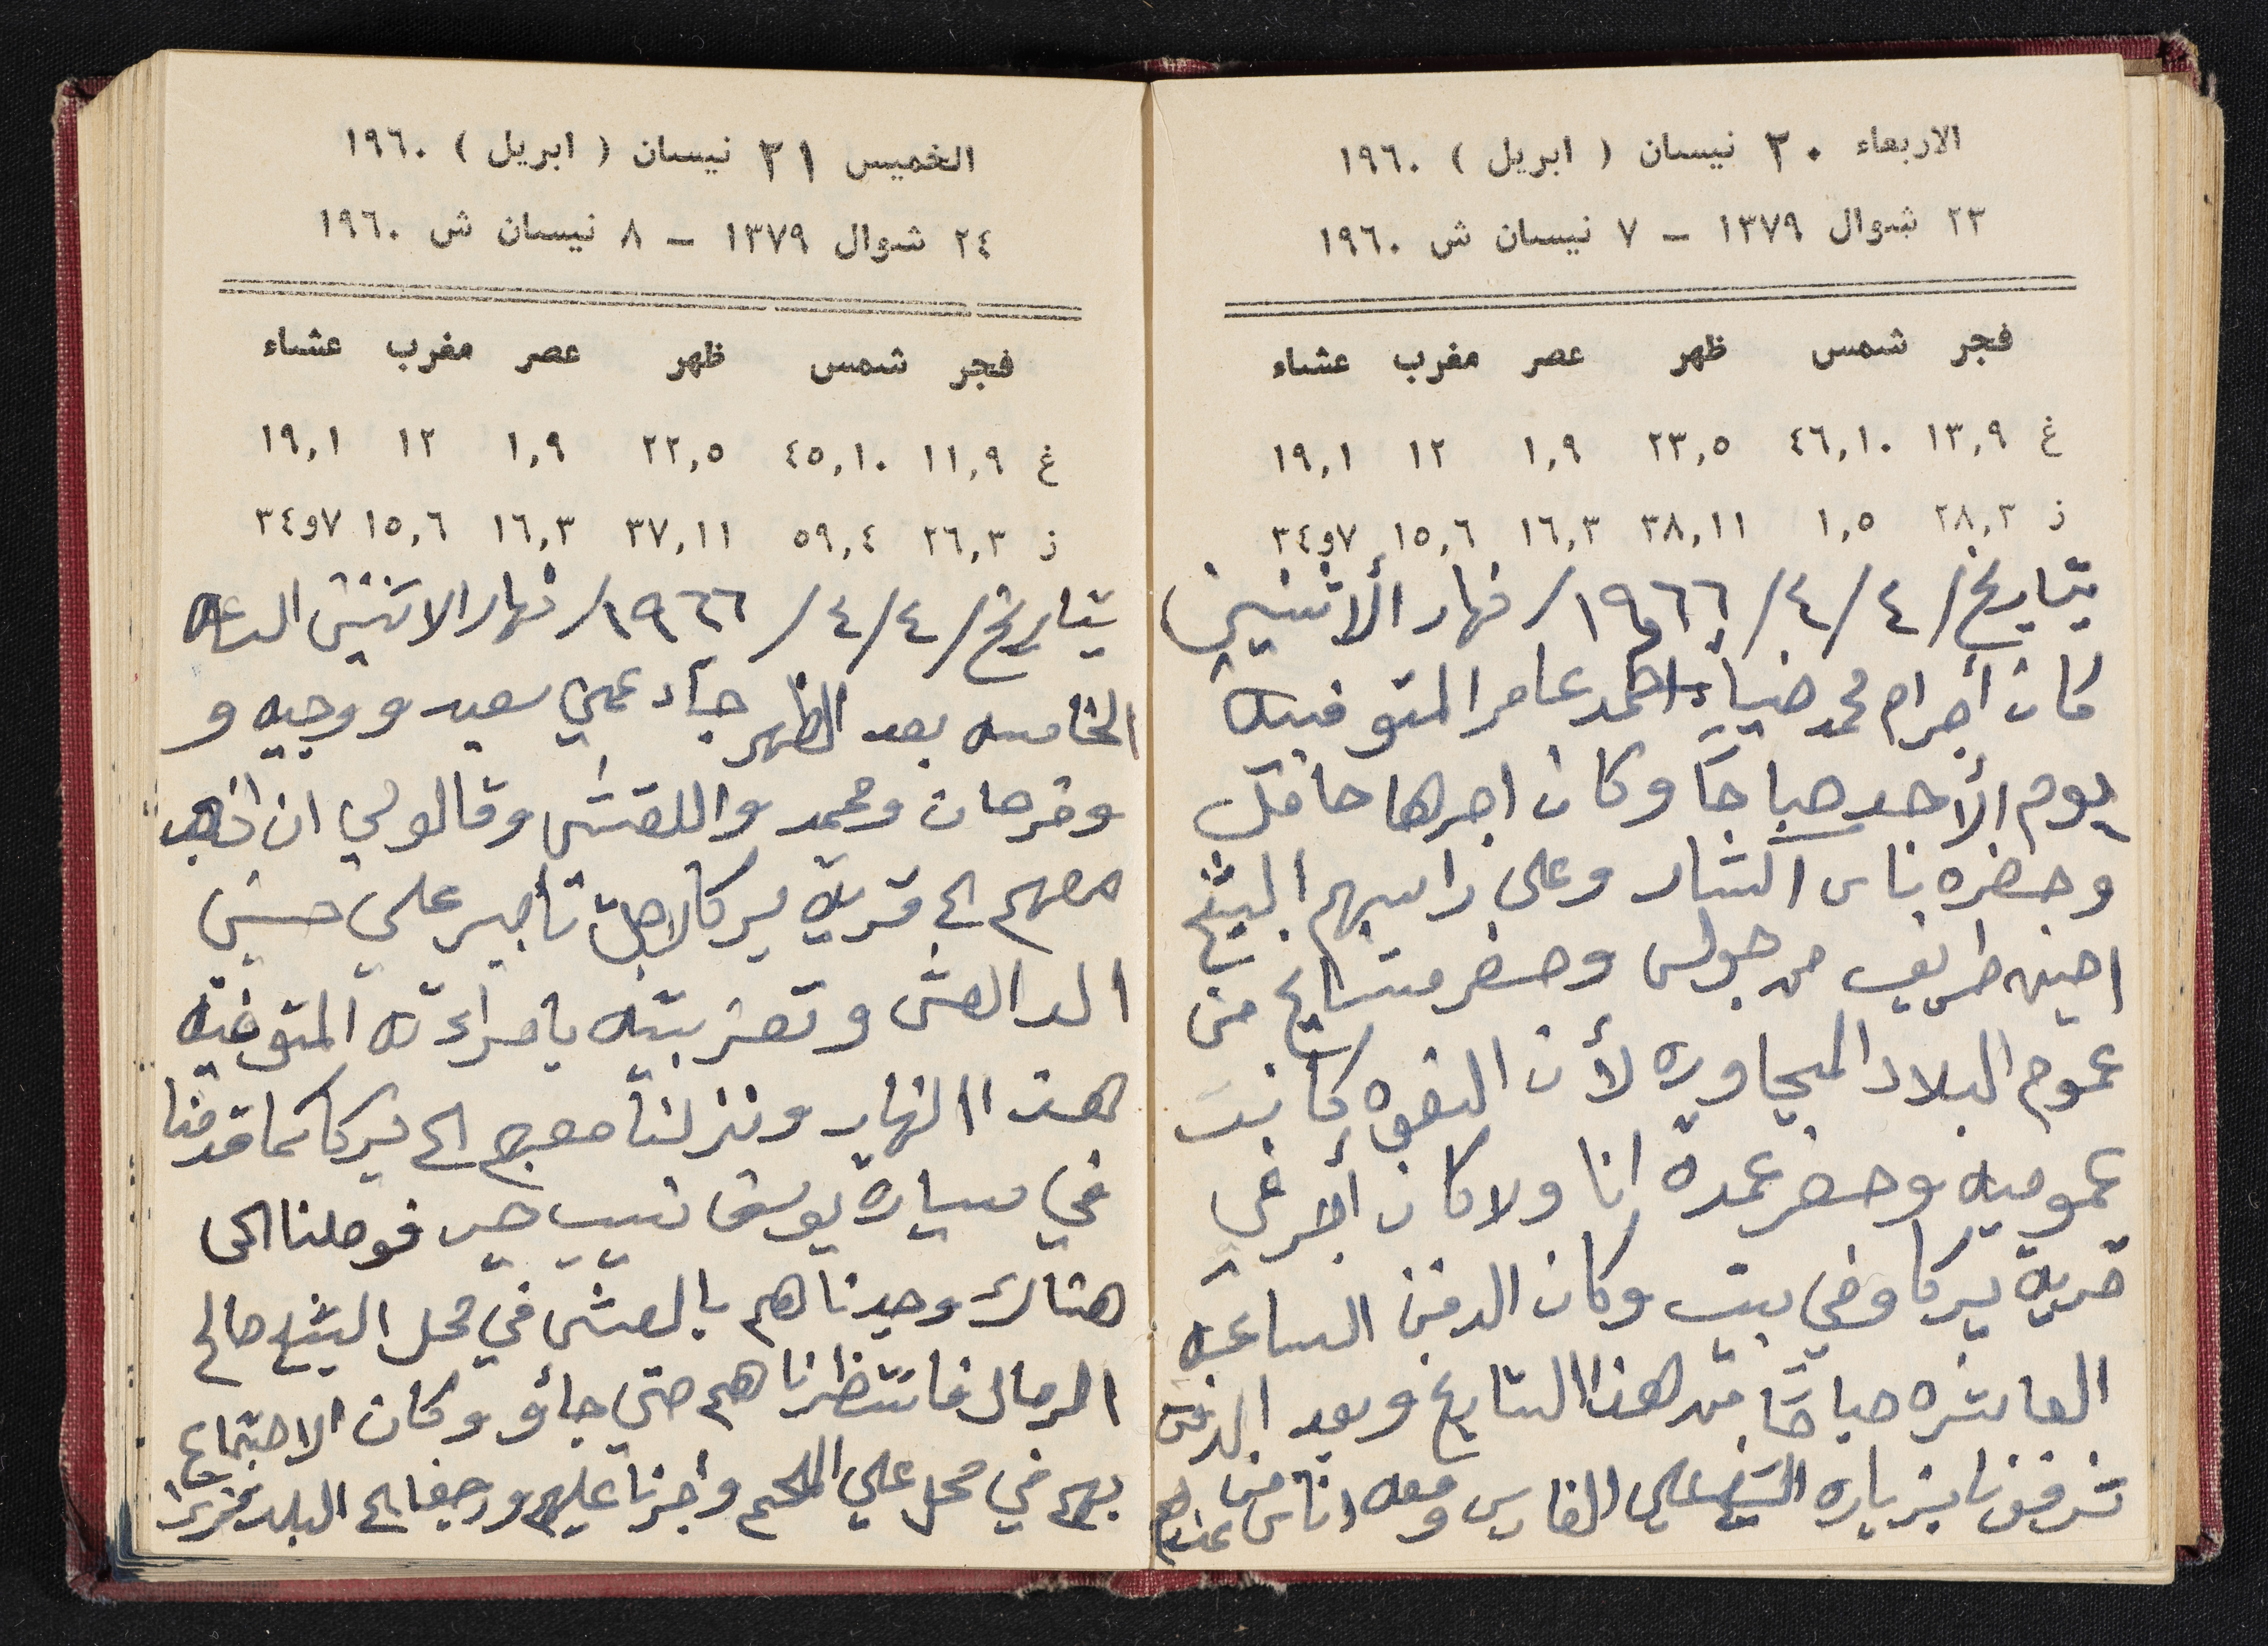 الاربعاء ٢٠ نيسان ( ابريل ) ١٩٦٠
٢٣ شوال ١٣٧٩ – ٧ نيسان ش ١٩٦٠
فجر شمس ظهر عصر مغرب عشاء
غ ١٣,٩ ٤٦,١٠ ٢٣,٥ ١,٩ ١٢ ١٩,١
ز ٢٨,٣ ١,٥ ٣٨,١١ ١٦,٣ ١٥,٦ ٧و٣٤
بتاريخ/ ٤/ ٤/ ١٩٦٦/ نهار ألاثنين
كان أجرام محمد ضياء احمد عامر المتوفيه
يوم ألأحد صباحاً وكان اجرها حافل
وحضره ناس اكثار وعلى راسهم الشيخ
امين طريف من جولس وحضر مشايخ من
عموم البلاد المجاوره لأن النقوه كانت
عموميه وحضر عمدة انا ولا كان أجر في
قرية يركا وفي بيت وكان الدفن الساعه
العاشره صباحاً من هذا التاريخ وبعد الدفن
شرفونا بزياره الشيخ علي الفارس ومعه اناس من عندهم
الخميس ٢١ نيسان ( ابريل ) ١٩٦٠
٢٤ شوال ١٣٧٩ – ٨ نيسان ش ١٩٦٠
فجر شمس ظهر عصر مغرب عشاء
غ ١١,٩ ٤٥,١٠ ٢٢,٥ ١,٩ ١٢ ١٩,١
ز ٢٦,٣ ٥٩,٤ ٣٧,١١ ١٦,٣ ١٥,٦ ٧و٣٤
بتاريخ/ ٤/ ٤/ ١٩٦٦/ نهار الاثنين الساعه
الخامسه بعد الظهر جاء عمي سعيد ووجيه و
وفرحان ومحمد واللقش وقالولي ان اذهب
معهم الى قرية يركا لاجل تأجير علي حسين
الدالعش وتعزيته بامراءته المتوفيه
هذا النهار ونزلنا معهم الى يركا كما قدمنا
في سيارة يوسف نسيب خير فوصلنا الى
هناك وجدناهم بالعشى في محل الشيخ صالح
الرمال فانتظرناهم حتى جاؤ وكان الاجتماع
بهم في محل علي الملحم واجرنا عليهم ورجعنا الى البلد